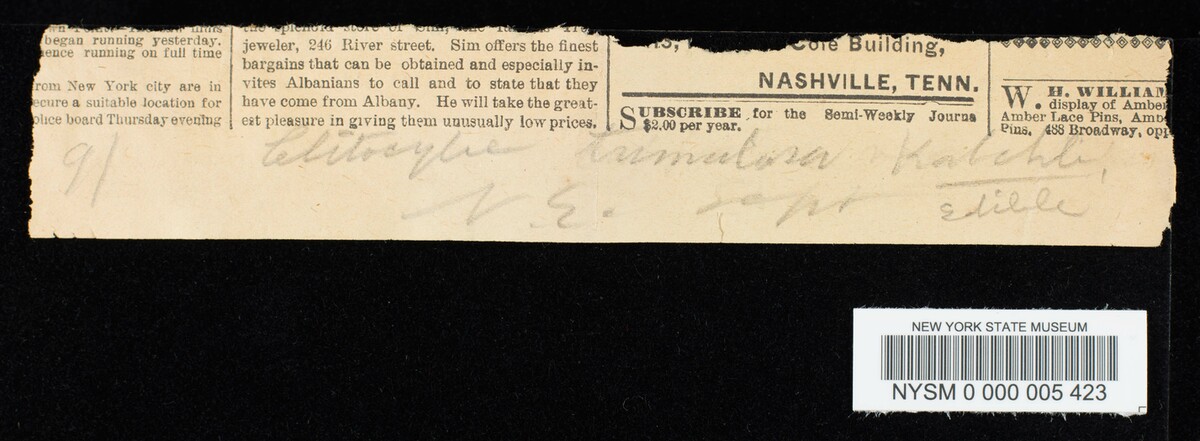 began running yesterday.
ence running on full time
rom New York city are in
ecure a suitable location for
olice board Thursday evening
the splendid store of Sim,
jeweler, 246 River street. Sim offers the finest
bargains that can be obtained and especially in-
vites Albanians to call and to state that they
have come from Albany. He will take the great-
est pleasure in giving them unusually low prices.
Cole Building,
NASHVILLE, TENN.
SUBSCRIBE for the Semi-Weekly Journa
$2.00 per year.
W. H. WILLIAM
display of Amber
Amber Lace Pins, Amb
Pins, 488 Broadway, opp
91 Clitocybe
N. E. Sept Edible
NEW YORK STATE MUSEUM
NYSM 0 000 005 423